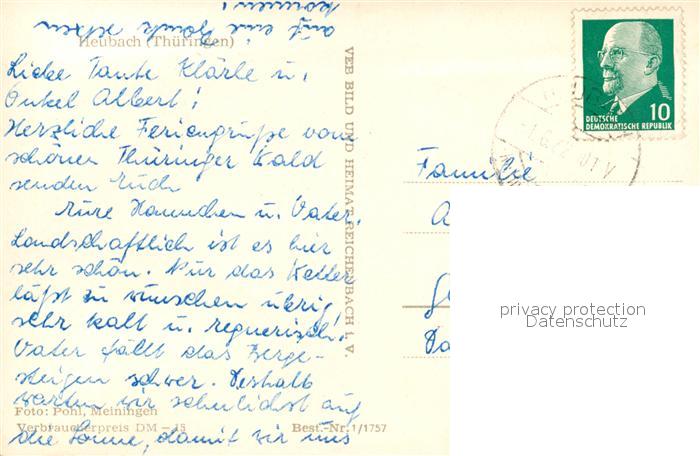 Heubach (Thüringen)
Liebe Tante Klärle u.
Onkel Albert!
Herzliche Feriengrüße vom
schönen Thüringer Wald
senden Euch
Eure Hannchen u. Vater.
Landschaftlich ist es hier
sehr schön. Nur das Wetter
läßt zu wünschen übrig!
sehr kalt u. regnerisch!
Vater fällt das Berge-
steigen schwer. Deshalb
warten wir sehnlichst auf
die Sonne, damit wir uns
auf eine Bank setzen
können!
Foto: Pohl, Meiningen
Verbraucherpreis DM —,15
Best.-Nr. 1/1757
VEB BILD UND HEIMAT REICHENBACH I. V.
10
DEUTSCHE
DEMOKRATISCHE REPUBLIK
Familie
privacy protection
Datenschutz